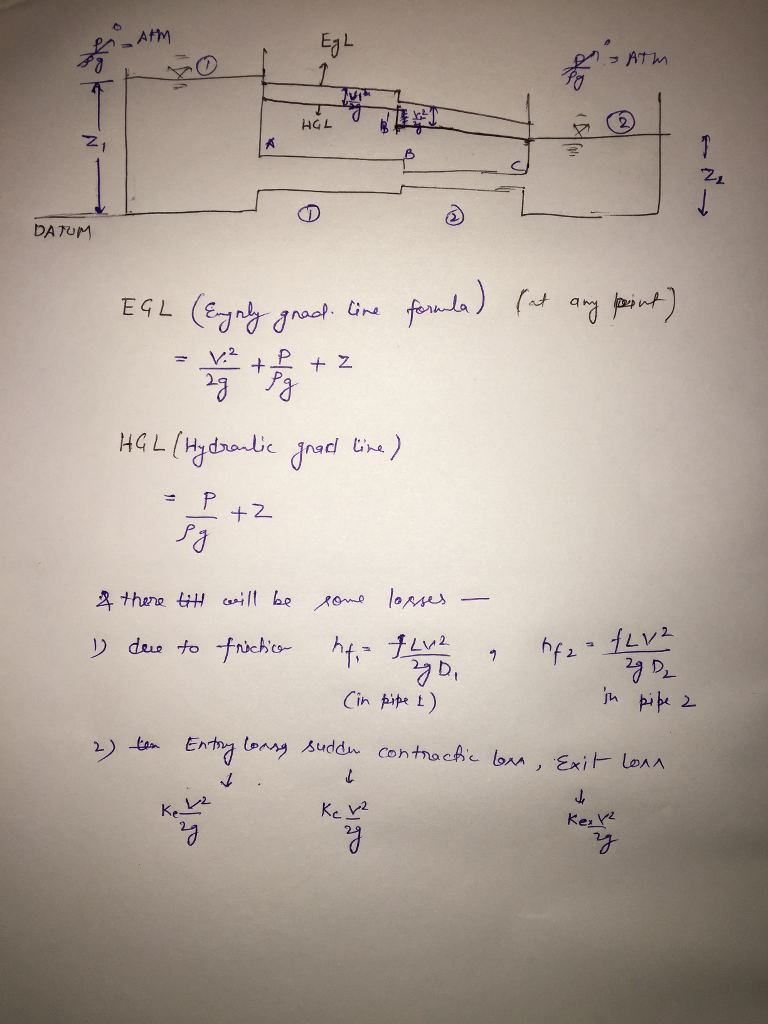 P/ρg = 0 = ATM
①
EgL
P/ρg = 0 = ATM
V₁²/2g
HGL
B'
V₂²/2g
②
Z₁
A
B
C
Z₂
①
②
DATUM
EGL (Engrly grad. line formula) (at any point)
= V²/2g + P/ρg + Z
HGL (Hydraulic grad line)
= P/ρg + Z
& there will be some losses —
1) due to friction hf₁ = fLV²/2gD₁ , hf₂ = fLV²/2gD₂
(in pipe 1) in pipe 2
2) Entry loss, sudden contractic loss, Exit loss
↓ ↓ ↓
Ke V²/2g Kc V²/2g Kex V²/2g